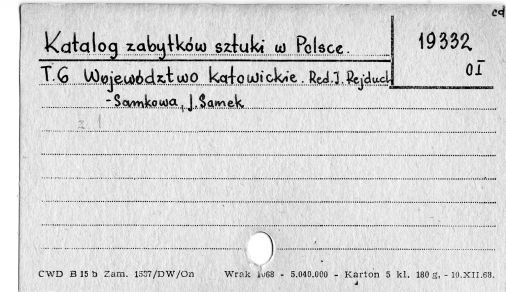 cd
Katalog zabytków sztuki w Polsce.
19332
OI
T.6 Województwo katowickie. Red. I. Rejduch
-Samkowa, J. Samek
z 1
CWD B 15 b Zam. 1337/DW/On Wrak 1068 - 5.040.000 - Karton 5 kl. 180 g. - 10.XII.68.